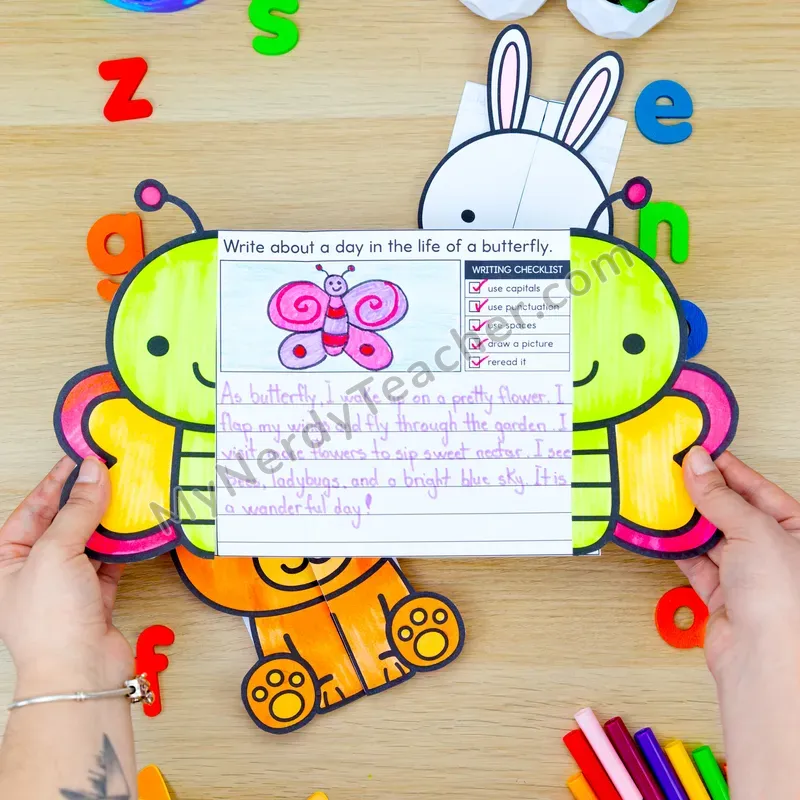 s
z
e
a
n
Write about a day in the life of a butterfly.
WRITING CHECKLIST
use capitals
use punctuation
use spaces
draw a picture
reread it
As butterfly, I wake up on a pretty flower. I
flap my wings and fly through the garden. I
visit more flowers to sip sweet nectar. I see
bees, ladybugs, and a bright blue sky. It is
a wonderful day!
MyNerdyTeacher.com
f